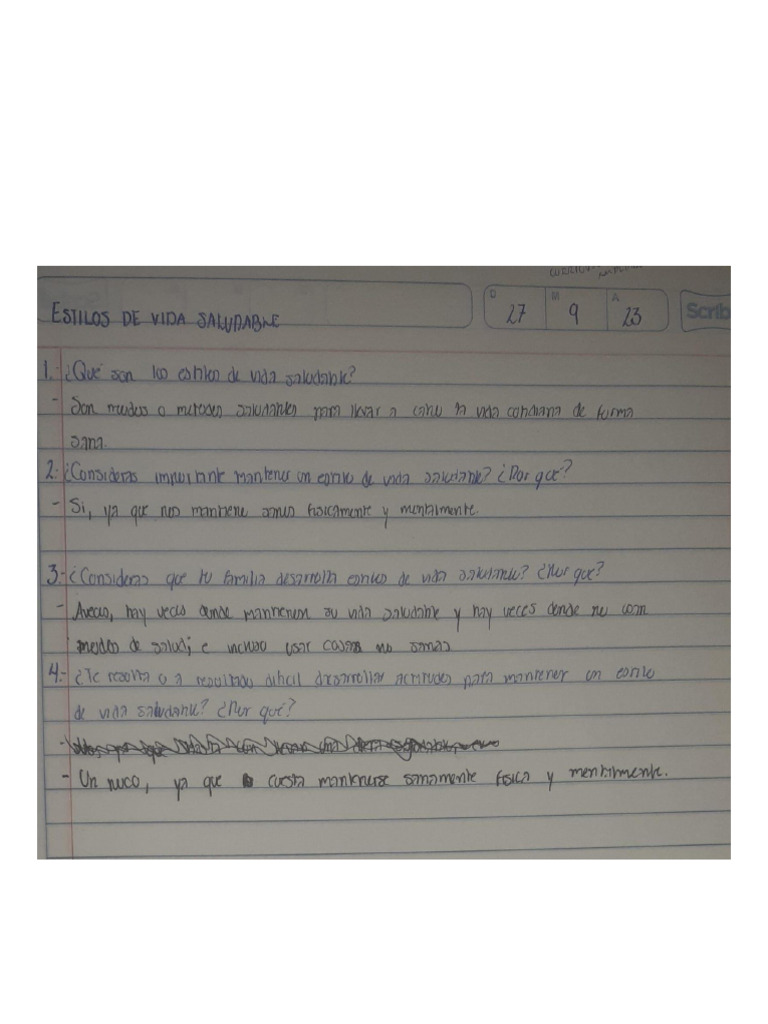 D M A
27 9 23
Scrib
ESTILOS DE VIDA SALUDABLE
1.- ¿Qué son los estilos de vida saludable?
- Son modos o metodos saludables para llevar a cabo la vida cotidiana de forma
sana.
2.- ¿Consideras importante mantener un estilo de vida saludable? ¿Por qué?
- Si, ya que nos mantiene sanos fisicamente y mentalmente.
3.- ¿Consideras que tu familia desarrolla estilos de vida saludable? ¿Por que?
- Aveces, hay veces donde mantienen su vida saludable y hay veces donde no con
medios de salud; e incluso usar cosas no sanas
4.- ¿Te resulta o a resultado dificil desarrollar actitudes para mantener un estilo
de vida saludable? ¿Por qué?
- Un poco, ya que cuesta mantenerse sanamente fisica y mentalmente.